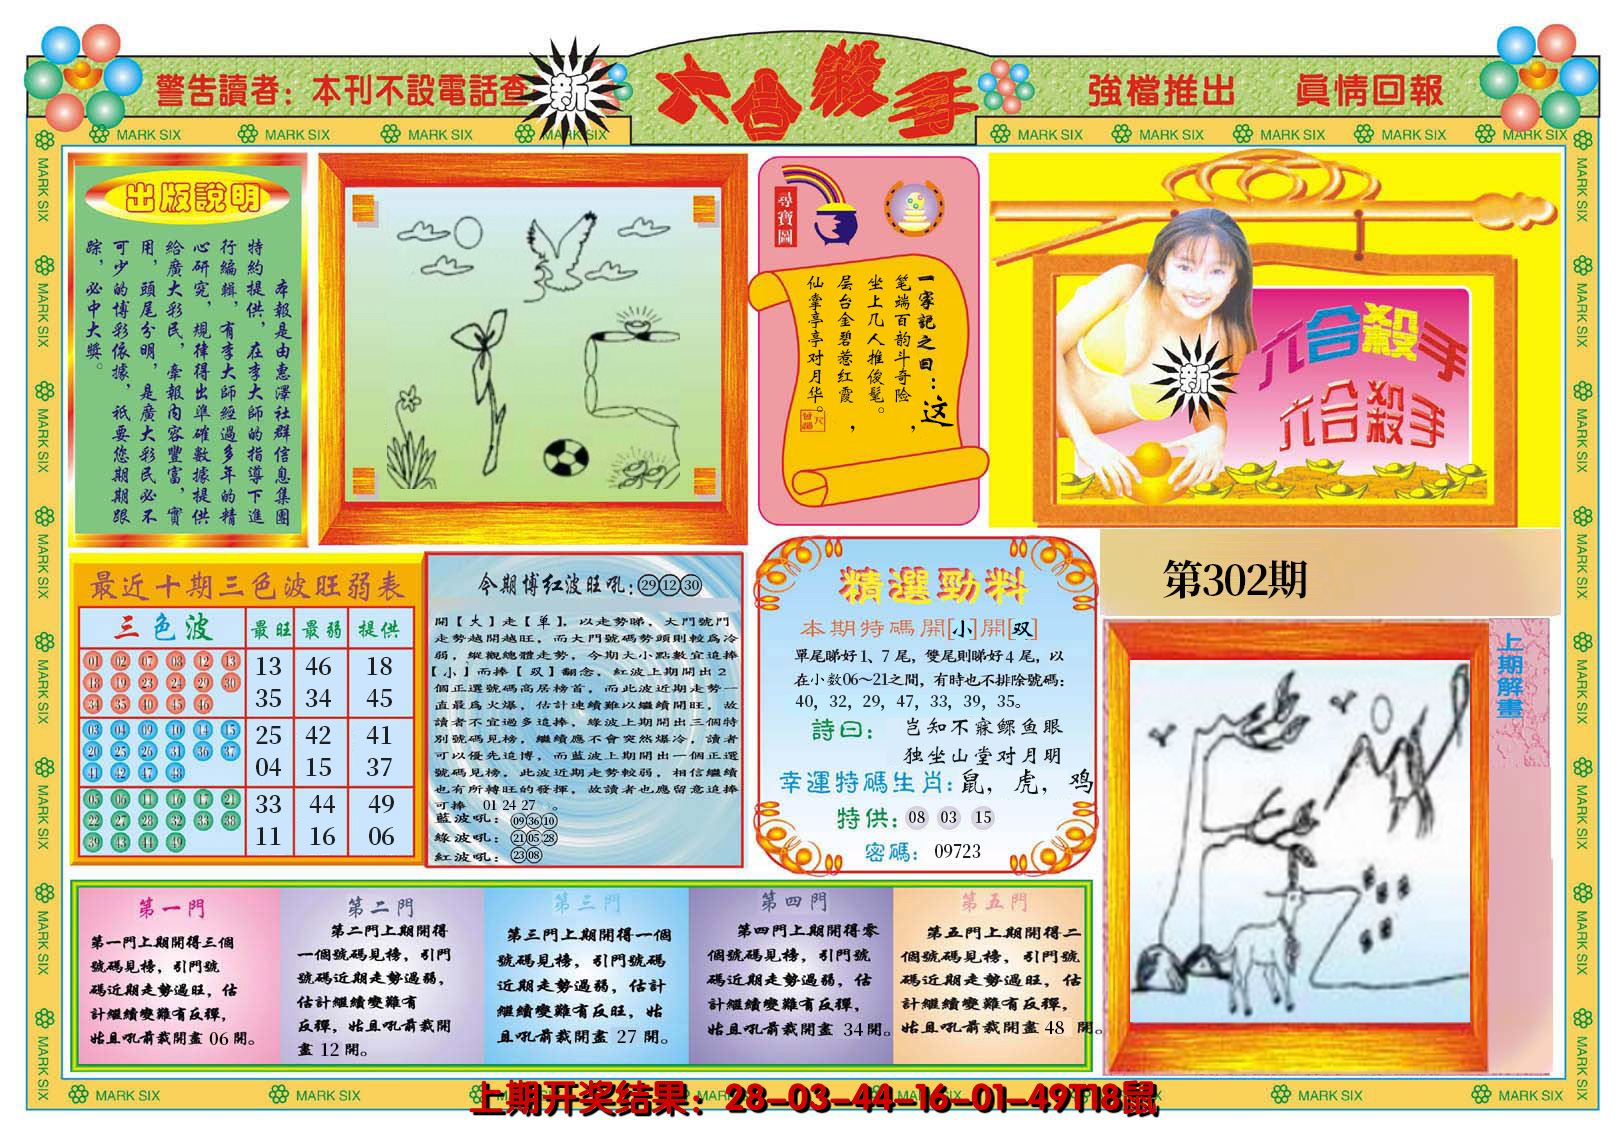 警告讀者：本刊不設電話查
新
六合殺手
強檔推出 眞情回報
MARK SIX MARK SIX MARK SIX MARK SIX MARK SIX MARK SIX MARK SIX MARK SIX MARK SIX
出版說明
本報是由惠澤社群信息集團
特約提供，在李大師的指導下進
行編輯，有李大師經過多年的精
心研究，規律得出準確數據提供
給廣大彩民，牽報內容豐富，實
用，頭尾分明，是廣大彩民必不
可少的博彩依據，祇要您期期跟
踪，必中大獎。
尋寶圖
一家記之曰：这
笔端百韵斗奇险，
坐上几人推俊髦。
层台金碧惹红霞，
仙掌亭亭对月华。
新
六合殺手
六合殺手
第302期
上期解畫
最近十期三色波旺弱表
三色波 最旺 最弱 提供
01 02 07 08 12 13
18 19 23 24 29 30
34 35 40 45 46
13 46 18
35 34 45
03 04 09 10 14 15
20 25 26 31 36 37
41 42 47 48
25 42 41
04 15 37
05 06 11 16 17 21
22 27 28 32 33 38
39 43 44 49
33 44 49
11 16 06
今期博红波旺吼：29 12 30
開【大】走【單】，以走勢睇，大門號門
走勢越開越旺，而大門號碼勢頭則較爲冷
弱，縱觀總體走勢，今期大小點數宜追捧
【小】而捧【双】翻念，紅波上期開出2
個正選號碼高居榜首，而此波近期走勢一
直最爲火爆，估計連續難以繼續開旺，故
讀者不宜過多追捧，綠波上期開出三個特
別號碼見榜，繼續應不會突然爆冷，讀者
可以優先追博，而藍波上期開出一個正選
號碼見榜，此波近期走勢較弱，相信繼續
也有所轉旺的發揮，故讀者也應留意追捧
可捧 01 24 27 。
藍波吼：09 36 10
綠波吼：21 05 28
紅波吼：23 08
精選勁料
本期特碼開[小]開[双]
單尾睇好1、7尾，雙尾則睇好4尾，以
在小数06～21之間，有時也不排除號碼：
40，32，29，47，33，39，35。
詩曰：岂知不寐鳏鱼眼
独坐山堂对月明
幸運特碼生肖：鼠，虎，鸡
特供：08 03 15
密碼：09723
第一門
第一門上期開得三個
號碼見榜，引門號
碼近期走勢過旺，估
計繼續變難有反彈，
姑且吼前裁開盡 06 開。
第二門
第二門上期開得
一個號碼見榜，引門
號碼近期走勢過弱，
估計繼續變難有
反彈，姑且吼前裁開
盡 12 開。
第三門
第三門上期開得一個
號碼見榜，引門號碼
近期走勢過弱，估計
繼續變難有反旺，姑
且吼前裁開盡 27 開。
第四門
第四門上期開得零
個號碼見榜，引門號
碼近期走勢過弱，估
計繼續變難有反彈，
姑且吼前裁開盡 34開。
第五門
第五門上期開得二
個號碼見榜，引門號
碼近期走勢過旺，估
計繼續變難有反彈，
姑且吼前裁開盡 48 開。
上期开奖结果：28-03-44-16-01-49T18鼠
MARK SIX MARK SIX MARK SIX MARK SIX